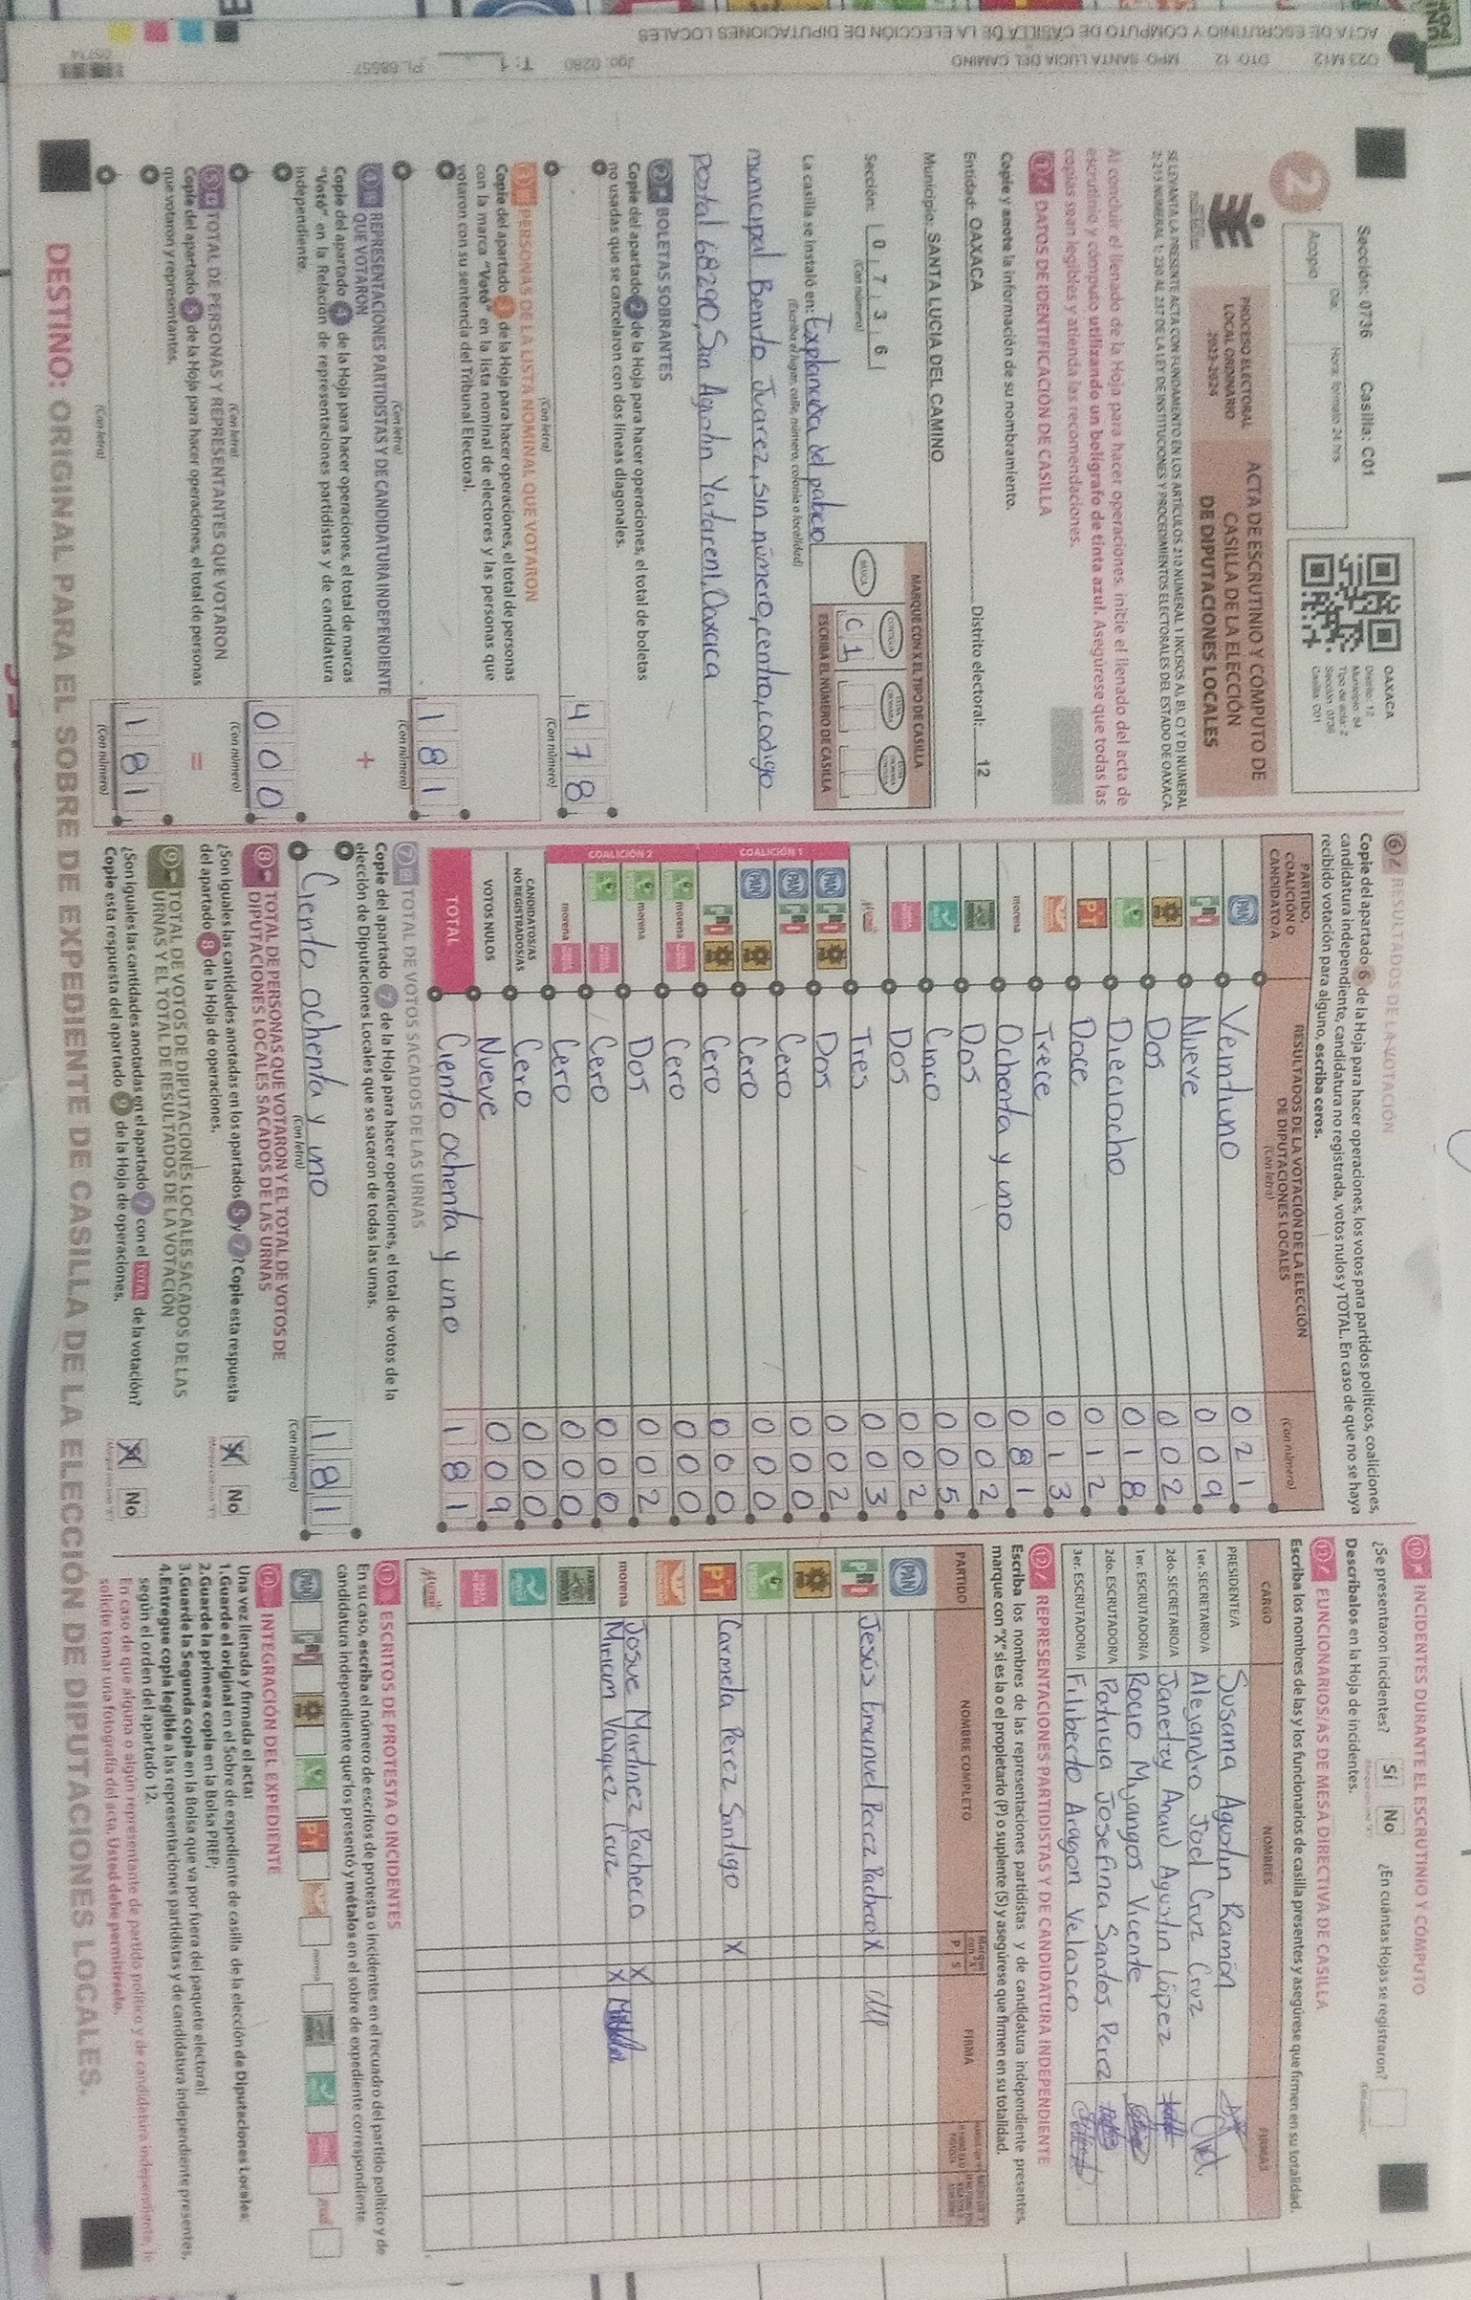 Sección: 0736 Casilla: C01
OAXACA
Distrito: 12
Municipio: 84
Tipo de acta: 2
Sección: 0736
Casilla: C01
2
Acopio
Día:
Hora: formato 24 hrs
PROCESO ELECTORAL
LOCAL ORDINARIO
2023-2024
ACTA DE ESCRUTINIO Y CÓMPUTO DE
CASILLA DE LA ELECCIÓN
DE DIPUTACIONES LOCALES
Al concluir el llenado de la Hoja para hacer operaciones, inicie el llenado del acta de
escrutinio y cómputo utilizando un bolígrafo de tinta azul. Asegúrese que todas las
copias sean legibles y atienda las recomendaciones.
1 DATOS DE IDENTIFICACIÓN DE CASILLA
Copie y anote la información de su nombramiento.
Entidad: OAXACA Distrito electoral: 12
Municipio: SANTA LUCIA DEL CAMINO
Sección: 0 7 3 6
(Con número)
MARQUE CON X EL TIPO DE CASILLA
BÁSICA
CONTIGUA
ESCRIBA EL NÚMERO DE CASILLA
C 1
La casilla se instaló en: Explanada del palacio
(Escriba el lugar, calle, número, colonia o localidad)
municipal Benito Juarez, sin número, centro, codigo
postal 68290, San Agustin Yatareni, Oaxaca
2 BOLETAS SOBRANTES
Copie del apartado 2 de la Hoja para hacer operaciones, el total de boletas
no usadas que se cancelaron con dos líneas diagonales.
4 7 8
(Con letra) (Con número)
3 PERSONAS DE LA LISTA NOMINAL QUE VOTARON
Copie del apartado 3 de la Hoja para hacer operaciones, el total de personas
con la marca "Votó" en la lista nominal de electores y las personas que
votaron con su sentencia del Tribunal Electoral.
1 8 1
(Con letra) (Con número)
4 REPRESENTACIONES PARTIDISTAS Y DE CANDIDATURA INDEPENDIENTE
QUE VOTARON +
Copie del apartado 4 de la Hoja para hacer operaciones, el total de marcas
"Votó" en la Relación de representaciones partidistas y de candidatura
independiente.
0 0 0
(Con letra) (Con número)
5 TOTAL DE PERSONAS Y REPRESENTANTES QUE VOTARON =
Copie del apartado 5 de la Hoja para hacer operaciones, el total de personas
que votaron y representantes.
1 8 1
(Con letra) (Con número)
6 RESULTADOS DE LA VOTACIÓN
Copie del apartado 6 de la Hoja para hacer operaciones, los votos para partidos políticos, coaliciones,
candidatura independiente, candidatura no registrada, votos nulos y TOTAL. En caso de que no se haya
recibido votación para alguno, escriba ceros.
PARTIDO,
COALICIÓN O
CANDIDATO/A
RESULTADOS DE LA VOTACIÓN DE LA ELECCIÓN
DE DIPUTACIONES LOCALES
(Con letra)
(Con número)
PAN Veintiuno 0 2 1
PRI Nueve 0 0 9
Dos 0 0 2
Dieciocho 0 1 8
PT Doce 0 1 2
Trece 0 1 3
morena Ochenta y uno 0 8 1
Dos 0 0 2
Cinco 0 0 5
Dos 0 0 2
Tres 0 0 3
COALICIÓN 1
PAN PRI Dos 0 0 2
PAN PRI Cero 0 0 0
PAN Cero 0 0 0
PRI Cero 0 0 0
COALICIÓN 2
morena Cero 0 0 0
morena Dos 0 0 2
Cero 0 0 0
morena Cero 0 0 0
CANDIDATOS/AS
NO REGISTRADOS/AS Cero 0 0 0
VOTOS NULOS Nueve 0 0 9
TOTAL Ciento ochenta y uno 1 8 1
7 TOTAL DE VOTOS SACADOS DE LAS URNAS
Copie del apartado 7 de la Hoja para hacer operaciones, el total de votos de la
elección de Diputaciones Locales que se sacaron de todas las urnas.
Ciento ochenta y uno 1 8 1
(Con letra) (Con número)
8 TOTAL DE PERSONAS QUE VOTARON Y EL TOTAL DE VOTOS DE
DIPUTACIONES LOCALES SACADOS DE LAS URNAS
¿Son iguales las cantidades anotadas en los apartados 5 y 7? Copie esta respuesta
del apartado 8 de la Hoja de operaciones.
X No
9 TOTAL DE VOTOS DE DIPUTACIONES LOCALES SACADOS DE LAS
URNAS Y EL TOTAL DE RESULTADOS DE LA VOTACIÓN
¿Son iguales las cantidades anotadas en el apartado 7 con el TOTAL de la votación?
Copie esta respuesta del apartado 9 de la Hoja de operaciones.
X No
10 INCIDENTES DURANTE EL ESCRUTINIO Y CÓMPUTO
¿Se presentaron incidentes? Sí No ¿En cuántas Hojas se registraron?
Descríbalos en la Hoja de incidentes.
FUNCIONARIOS/AS DE MESA DIRECTIVA DE CASILLA
Escriba los nombres de las y los funcionarios de casilla presentes y asegúrese que firmen en su totalidad.
CARGO NOMBRES FIRMAS
PRESIDENTE/A Susana Agustin Ramón
1er. SECRETARIO/A Alejandro Joel Cruz Cruz
2do. SECRETARIO/A Janetzy Anaid Agustin López
1er. ESCRUTADOR/A Rocio Mijangos Vicente
2do. ESCRUTADOR/A Patricia Josefina Santos Perez
3er. ESCRUTADOR/A Filiberto Aragon Velasco
12 REPRESENTACIONES PARTIDISTAS Y DE CANDIDATURA INDEPENDIENTE
Escriba los nombres de las representaciones partidistas y de candidatura independiente presentes,
marque con "X" si es la o el propietario (P) o suplente (S) y asegúrese que firmen en su totalidad.
PARTIDO NOMBRE COMPLETO P S FIRMA
PAN
PRI Jesús Emanuel Perez Pacheco X
PT Carmela Perez Santigo X
morena Josue Martinez Pacheco X
Miriam Vasquez Cruz X
ESCRITOS DE PROTESTA O INCIDENTES
En su caso, escriba el número de escritos de protesta o incidentes en el recuadro del partido político y de
candidatura independiente que los presentó y métalos en el sobre de expediente correspondiente.
PAN PRI PT morena
INTEGRACIÓN DEL EXPEDIENTE
Una vez llenada y firmada el acta:
1.Guarde el original en el Sobre de expediente de casilla de la elección de Diputaciones Locales;
2.Guarde la primera copia en la Bolsa PREP;
3.Guarde la Segunda copia en la Bolsa que va por fuera del paquete electoral;
4.Entregue copia legible a las representaciones partidistas y de candidatura independiente presentes,
según el orden del apartado 12.
En caso de que alguna o algún representante de partido político y de candidatura independiente, le
solicite tomar una fotografía del acta. Usted debe permitírselo.
DESTINO: ORIGINAL PARA EL SOBRE DE EXPEDIENTE DE CASILLA DE LA ELECCIÓN DE DIPUTACIONES LOCALES.
ACTA DE ESCRUTINIO Y CÓMPUTO DE CASILLA DE LA ELECCIÓN DE DIPUTACIONES LOCALES
023 M12 DTO: 12 MPO: SANTA LUCIA DEL CAMINO